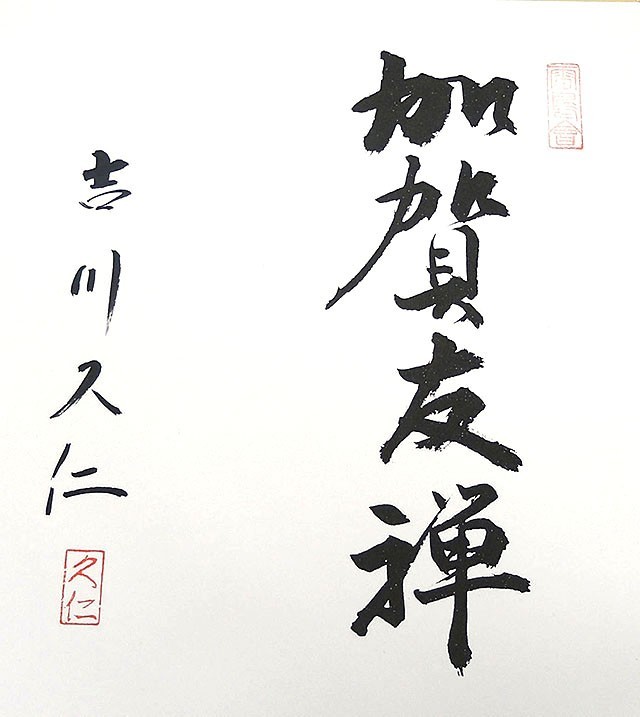 加賀友禅
吉川久仁
久仁